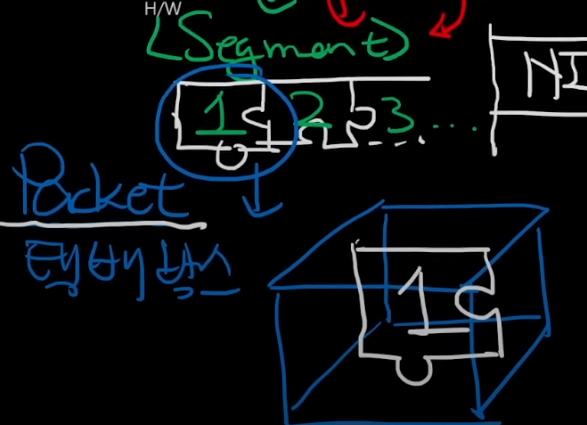 H/W
(Segment)
1 2 3 ....
NI
Packet
1